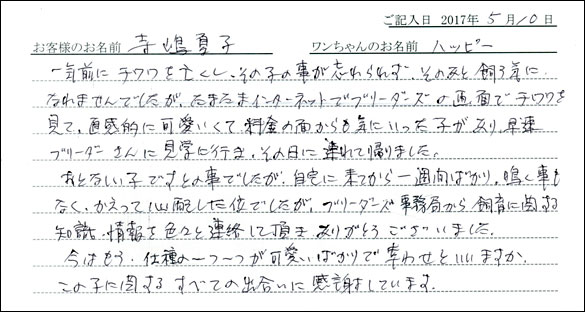 ご記入日 2017年 5月10日
お客様のお名前 寺嶋夏子 ワンちゃんのお名前 ハッピー
一年前にチワワを亡くし、その子の事が忘れられず、そのあと飼う気に
なれませんでしたが、たまたまインターネットでブリーダーズの画面でチワワを
見て、直感的に可愛いくて、料金の面からも気にいった子があり、早速
ブリーダーさんに見学に行き、その日に連れて帰りました。
おとなしい子ですとの事でしたが、自宅に来てから一週間ばかり、鳴く事も
なく、かえって心配した位でしたが、ブリーダーズ事務局から飼育に関する
知識、情報を色々と連絡して頂き ありがとうございました。
今はもう、仕種の一つ一つが可愛いばかりで幸わせといいますか、
この子に関するすべての出合いに感謝しています。